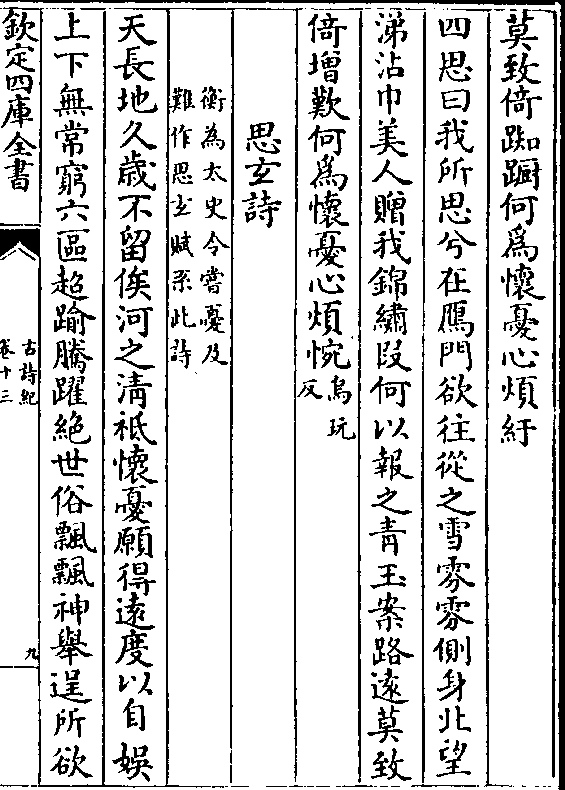 莫致倚踟蹰何為懷憂心煩紆
四思曰我所思兮在鴈門欲往從之雪雰雰側身北望
涕沾巾美人贈我錦繡段何以報之青玉案路遠莫致
倚增歎何為懷憂心煩惋烏玩反
思玄詩
衡為太史令嘗憂及
難作思玄賦系此詩
天長地久歲不留俟河之清祗懷憂願得遠度以自娱
上下無常窮六區超踰騰躍絶世俗飄飄神舉逞所欲
欽定四庫全書
古詩紀
卷十三
九